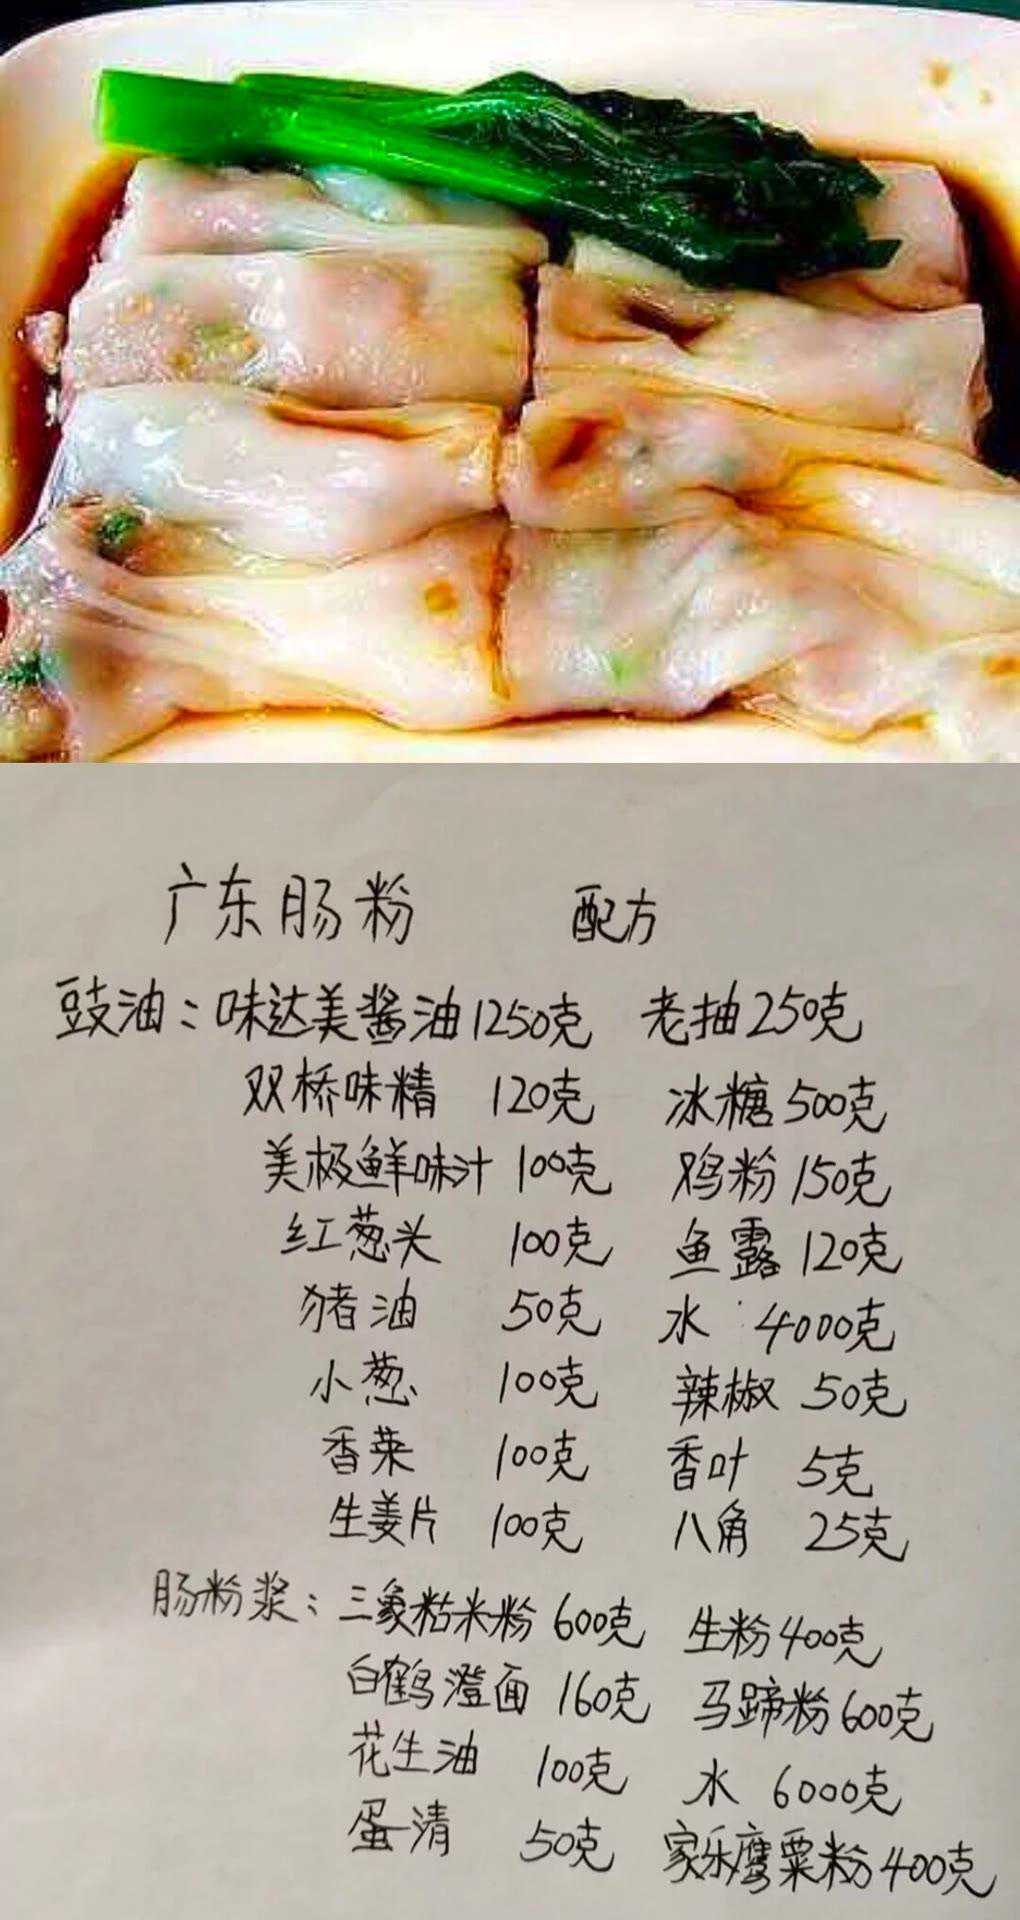 广东肠粉 配方
豉油：味达美酱油1250克 老抽250克
双桥味精 120克 冰糖500克
美极鲜味汁 100克 鸡粉150克
红葱头 100克 鱼露120克
猪油 50克 水 4000克
小葱 100克 辣椒 50克
香菜 100克 香叶 5克
生姜片 100克 八角 25克
肠粉浆：三象粘米粉600克 生粉400克
白鹤澄面 160克 马蹄粉600克
花生油 100克 水 6000克
蛋清 50克 家乐鹰粟粉400克